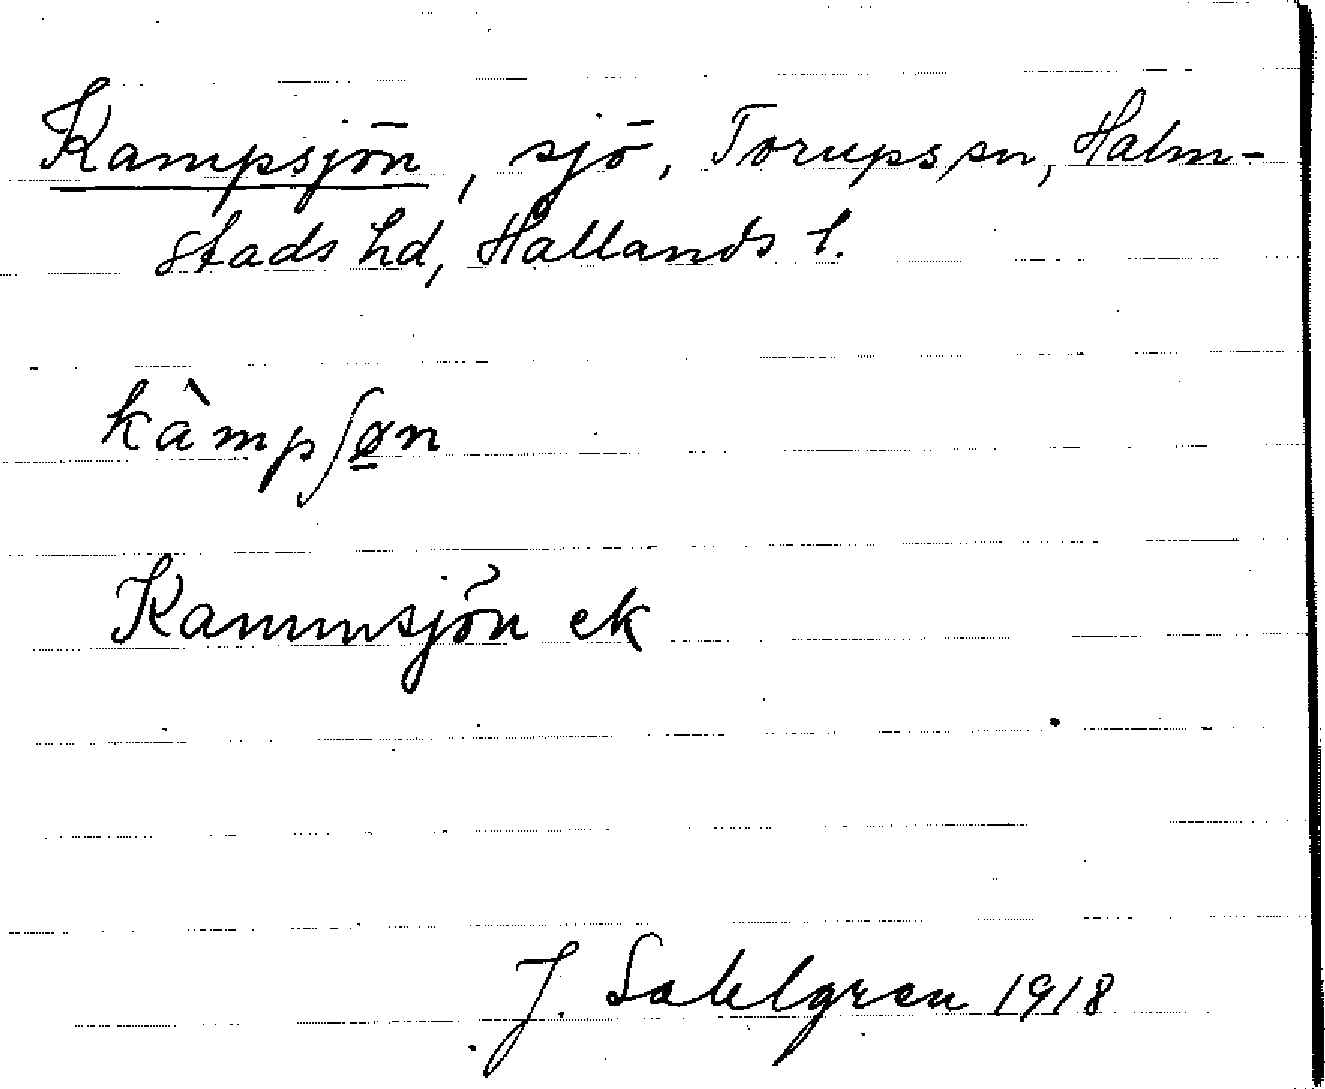 Kampsjön, sjö, Torups sn, Halm-
stads hd, Hallands l.
kàmpʃø̲n
Kammsjön ek
J. Sahlgren 1918